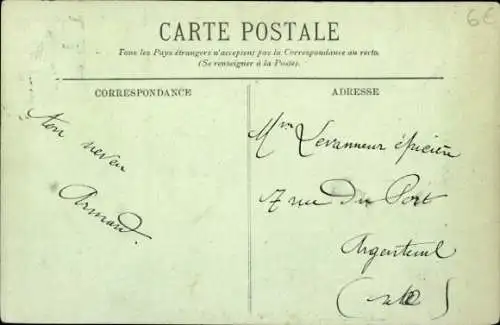 6€
CARTE POSTALE
Tous les Pays étrangers n'acceptent pas la Correspondance au recto.
(Se renseigner à la Poste).
CORRESPONDANCE
ADRESSE
ton neveu
Armand.
Levanneur épicière
7 rue Du Port
Argenteuil